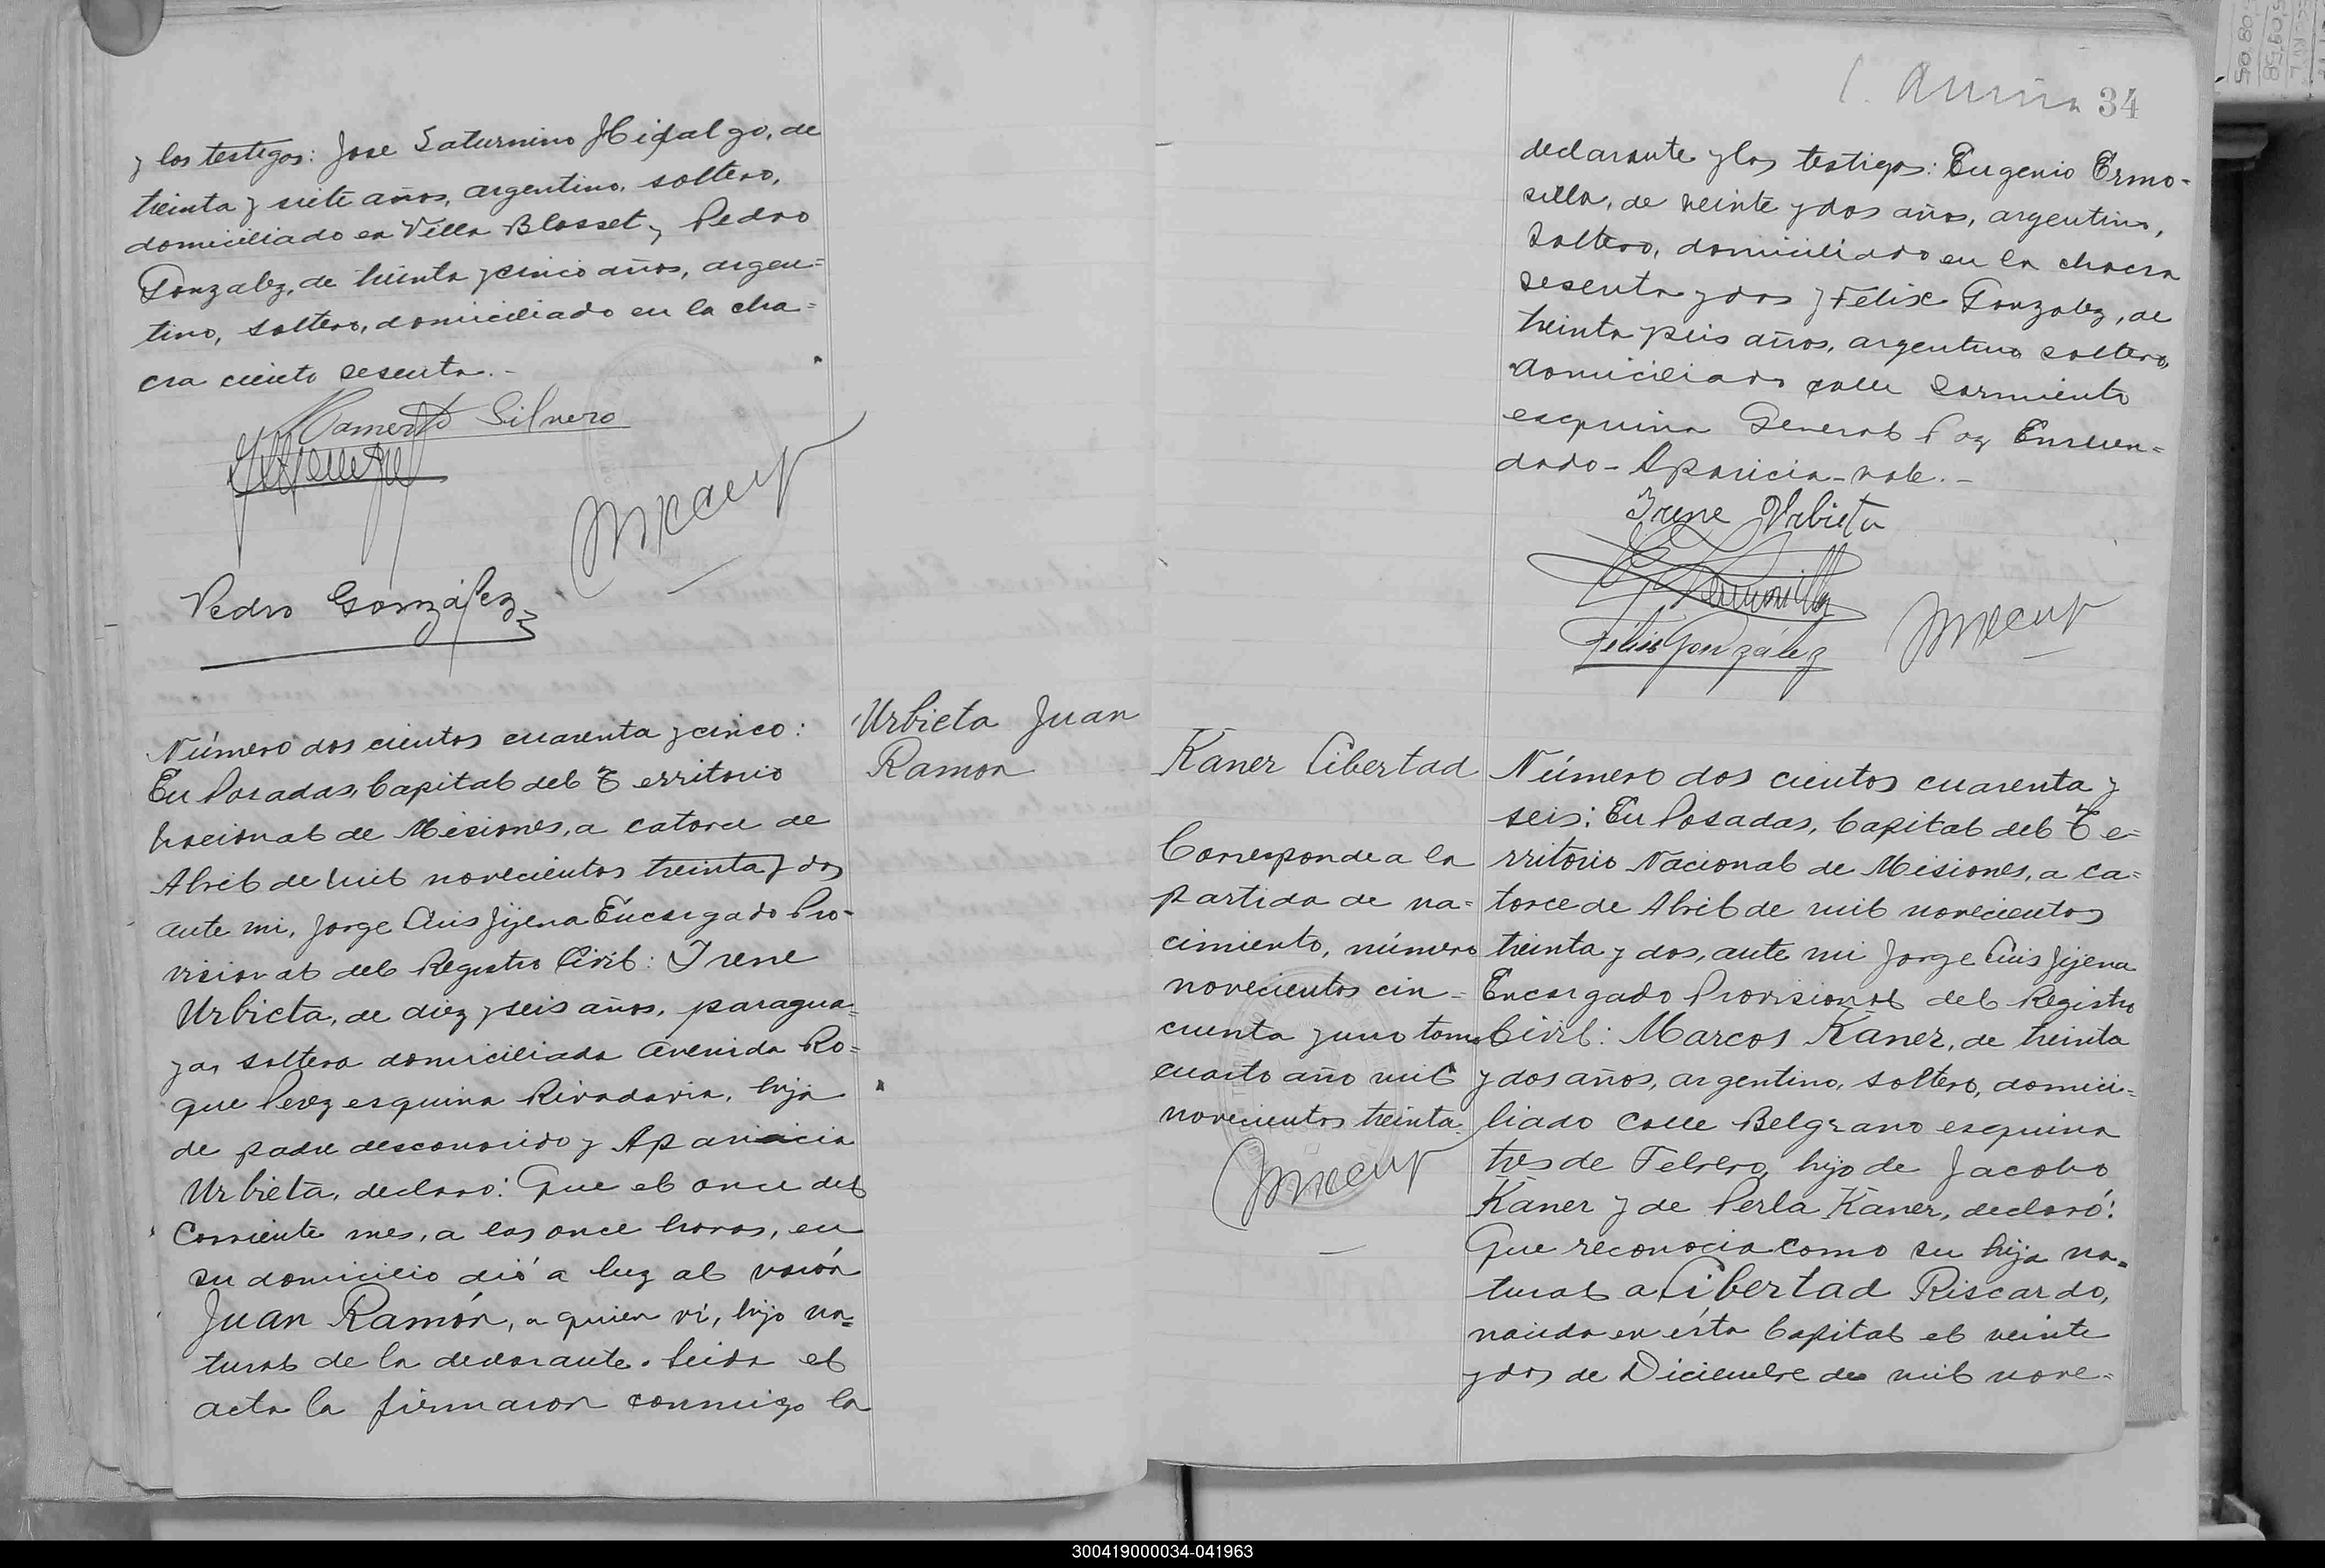 y los testigos: Jose Saturnino Hidalgo, de
treinta y siete años, argentino, soltero,
domiciliado en Villa Blosset y Pedro
Gonzalez, de treinta y cinco años, argen=
tino, soltero, domiciliado en la cha=
cra ciento sesenta.-
Mamerto Silvero
Pedro González
Número dos cientos cuarenta y cinco:
En Posadas, Capital del Territorio
Nacional de Misiones, a catorce de
Abril de mil novecientos treinta y dos
ante mi, Jorge Luis Jijena Encargado Pro-
visional del Registro Civil: Irene
Urbieta, de diez y seis años, paragua=
ya, soltera domiciliada Avenida Ro=
que Perez esquina Rivadavia, hija
de padre desconocido y Aparicia
Urbieta, declaró: Que el once del
corriente mes, a las once horas, en
su domicilio dió a luz al varón
Juan Ramón, a quien vi, hijo na=
tural de la declarante. Leida el
acta la firmaron conmigo la
Urbieta Juan
Ramon
34
declarante y los testigos: Eugenio Ermo-
silla, de veinte y dos años, argentino,
soltero, domiciliado en la chacra
sesenta y dos y Felix Gonzalez, de
treinta y seis años, argentino soltero,
domiciliado calle Sarmiento
esquina General Paz Enmen=
dado - Aparicia - vale.-
Irene Urbieta
Félix González
Kaner Libertad
Corresponde a la
partida de na=
cimiento, número
novecientos cin=
cuenta y uno tomo
cuarto año mil
novecientos treinta.
Número dos cientos cuarenta y
seis: En Posadas, Capital del Te=
rritorio Nacional de Misiones, a ca=
torce de Abril de mil novecientos
treinta y dos, ante mi Jorge Luis Jijena
Encargado Provisional del Registro
Civil: Marcos Kaner, de treinta
y dos años, argentino, soltero, domici=
liado calle Belgrano esquina
tres de Febrero, hijo de Jacobo
Kaner y de Perla Kaner, declaró:
Que reconocia como su hija na=
tural a Libertad Riscardo,
nacida en ésta Capital el veinte
y dos de Diciembre de mil nove=
300419000034-041963